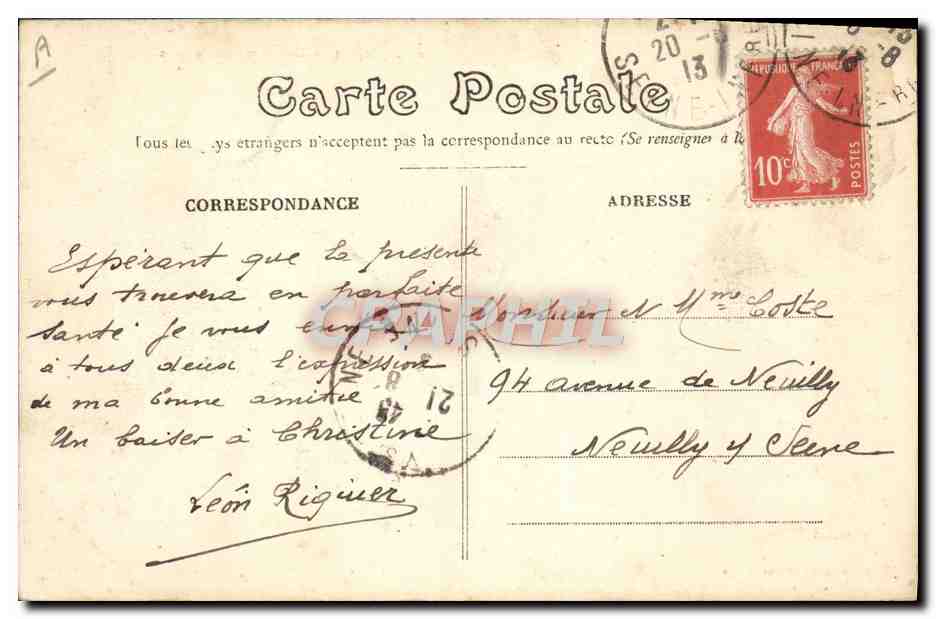 A
Carte Postale
Tous les pays étrangers n'acceptent pas la correspondance au recto (Se renseigner à la
CORRESPONDANCE
ADRESSE
REPUBLIQUE FRANÇAISE
10c
POSTES
20 - 8
13
SEINE-INFRE
Espérant que la présente
vous trouvera en parfaite
santé je vous envoie
à tous deux l'expression
de ma bonne amitié
Un baiser à Christine
Léon Riguier
Monsieur & Mme Coste
94 avenue de Neuilly
Neuilly s/ Seine
21
8
CPARHIL